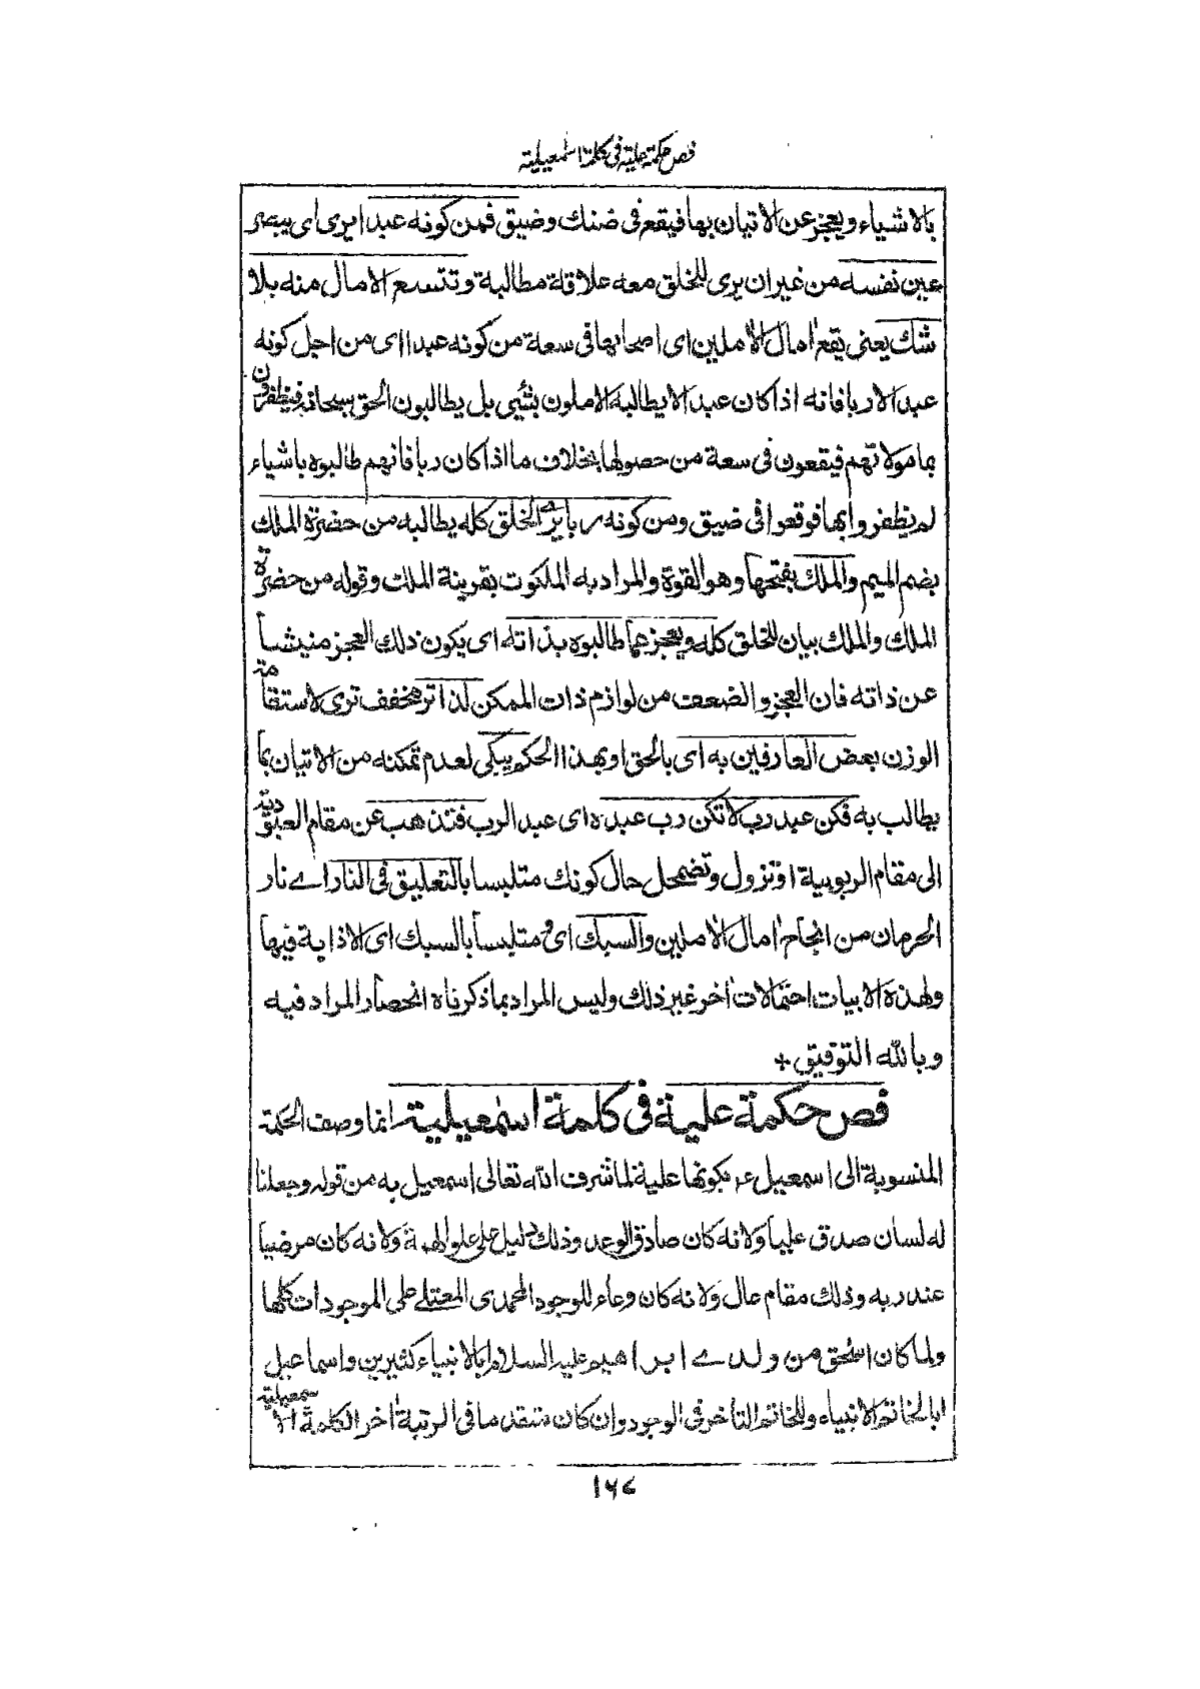 فص حكمة علية فى كلمة اسمعيلية
بالاشياء ويعجز عن الاتيان بها فيقع فى ضنك وضيق فمن كونه عبدا يرى اى يبصر
عين نفسه من غير ان يرى للخلق معه علاقلة مطالبة وتتسع الامال منه بلا
شك يعنى يقع اٰمال الاٰملين اى اصحابها فى سعة من كونه عبدا اى من اجل كونه
عبدا لا ربا فانه اذا كان عبدا لا يطالبه الاملون بشيئ بل يطالبون الحق سبحانه فيظفرون
بما مولاتهم فيقعون فى سعة من حصولها بخلاف ما اذا كان ربا فانهم طالبوه باشياء
لم يظفروا بها فوقعوا فى ضيق ومن كونه ربا يرے الخلق كله يطالبه من حضرة الملك
بضم الميم والملك بفتحها وهو القوة والمراد به الملكوت بقرينة الملك وقوله من حضرة
الملك والملك بيان للخلق كله ويعجز عما طالبوه بذاته اى يكون ذلك العجز منيشأ
عن ذاته فان العجز والضعف من لوازم ذات الممكن لذا تر مخفف ترى لاستقامة
الوزن بعض العارفين به اى بالحق او بهذا الحكم يبكى لعدم تمكنه من الاتيان بما
يطالب به فكن عبد رب لا تكن رب عبده اى عبد الرب فتذهب عن مقام العبودية
الى مقام الربوبية او تزول وتضمحل حال كونك متلبسا بالتعليق فى النار اے نار
الحرمان من انجام اٰمال الاٰملين والسبك اى ومتلبسأ بالسبك اى الاذابة فيها
ولهذه الابيات احتمالات اٰخر غير ذلك وليس المراد بما ذكرناه انحصار المراد فيه
وبالله التوفيق +
فص حكمة علية فى كلمة اسمٰعيلية انما وصف الحكمة
المنسوبة الى اسمعيل عم بكونها علية لما شرف الله تعالى اسمعيل به من قوله وجعلنا
له لسان صدق عليا ولانه كان صادق الوعد وذلك دليل على علو الهمة ولانه كان مرضيا
عند ربه وذلك مقام عال ولانه كان وعاء للوجود المحمدى المعتلے على الموجودات كلها
ولما كان اسٰحق من ولدے ابراهيم عليه السلام ابا لانبياء كثيرين واسماعيل
ابا لخاتم الانبياء وللخاتم التاخر فى الوجود وان كان متقدما فى الرتبة اٰخر الكلمة الاسمعيلية
١٦٧